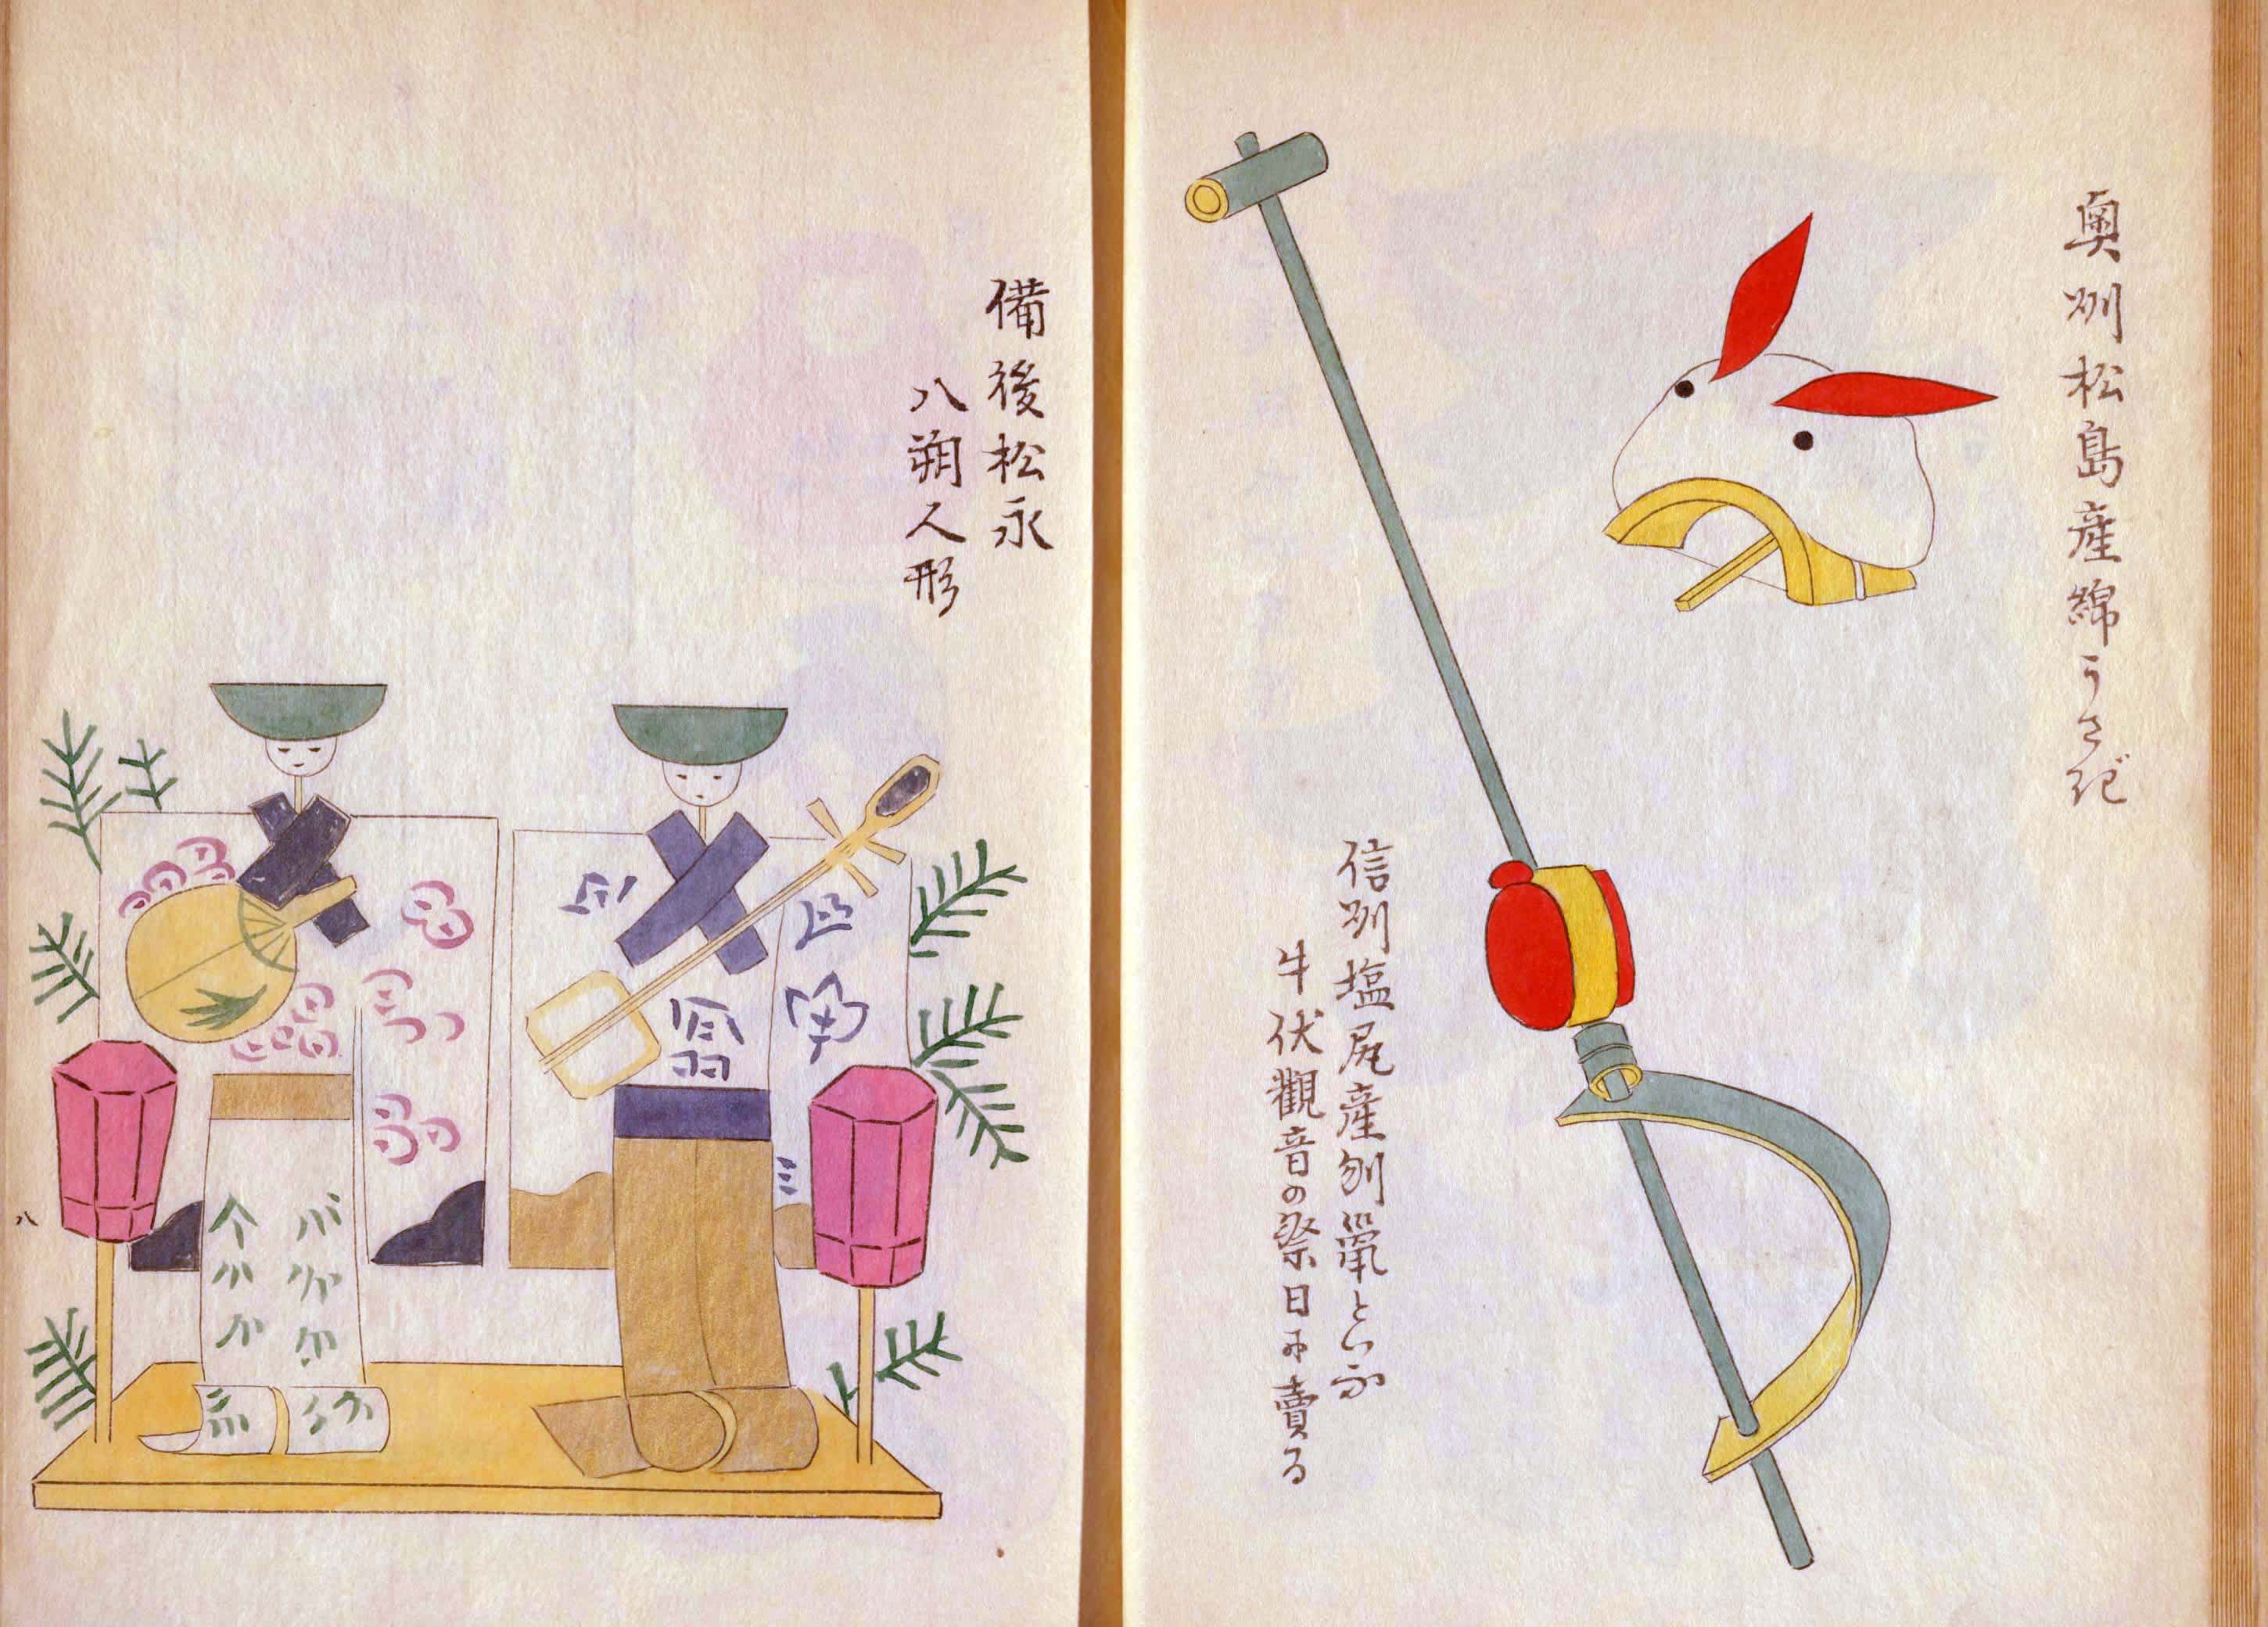 奥州松島産綿うさぎ
信州塩尻産刎猿といふ
牛伏觀音の祭日に賣る
備後松永
八朔人形
八